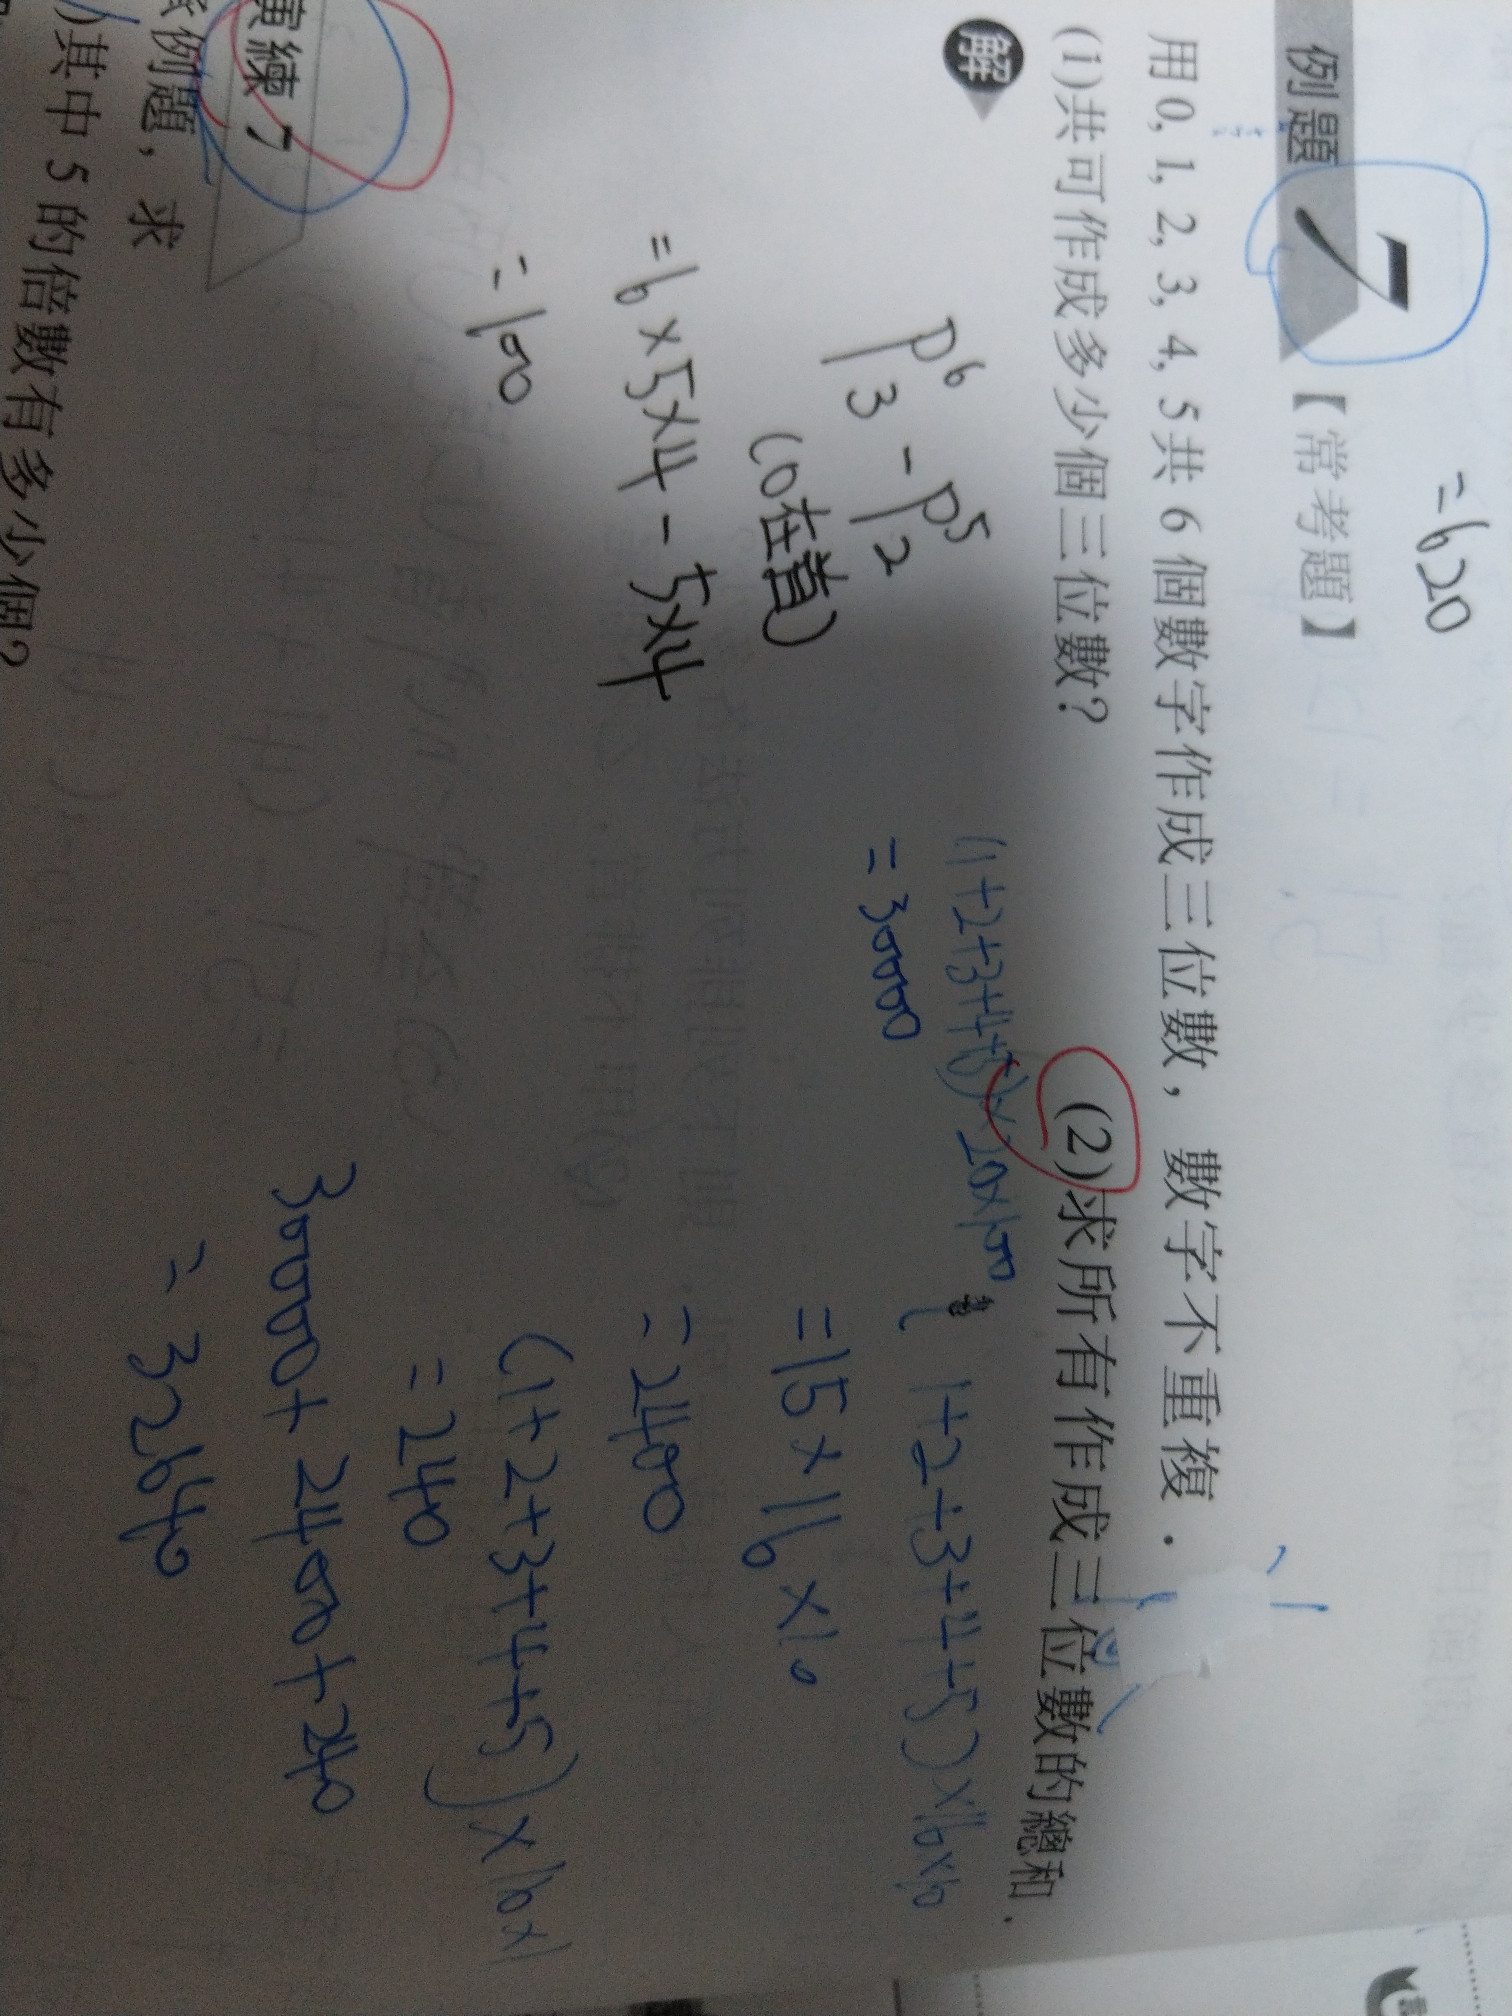 =620
例題 7 【常考題】
用 0, 1, 2, 3, 4, 5 共 6 個數字作成三位數，數字不重複．
(1)共可作成多少個三位數？
(2)求所有作成三位數的總和．
解
P⁶₃ - P⁵₂
(0在首)
=6×5×4-5×4
=100
(1+2+3+4+5)×20×100
=30000
(1+2+3+4+5)×16×10
=15×16×10
=2400
(1+2+3+4+5)×16×1
=240
30000+2400+240
=32640
演練 7
例題，求
)其中 5 的倍數有多少個？